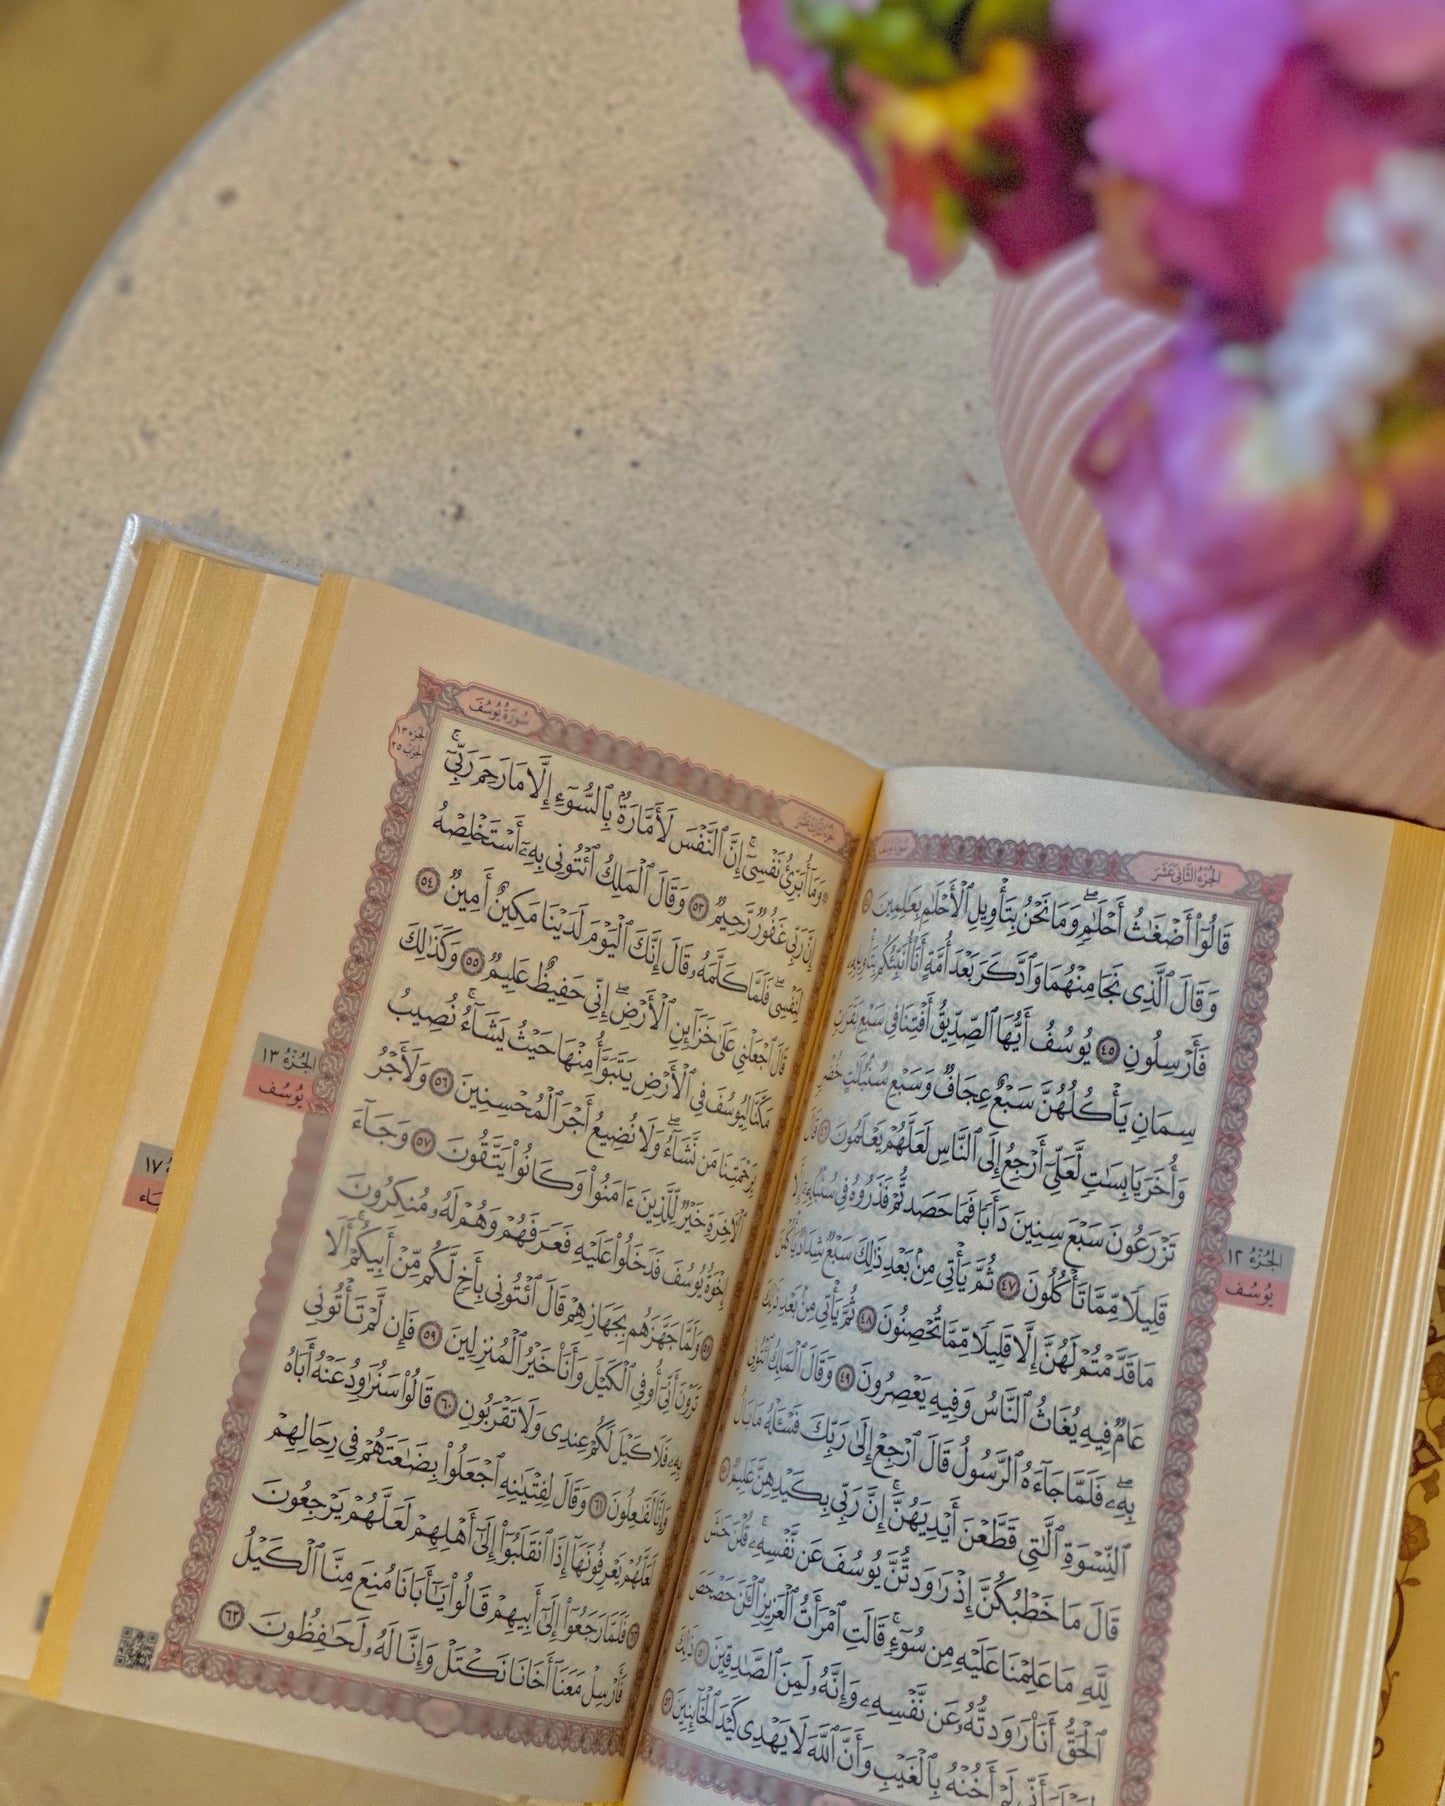 الجُزْءُ الثَّانِي عَشَرَ
سُورَةُ يُوسُفَ
قَالُوٓا۟ أَضْغَٰثُ أَحْلَٰمٍۖ وَمَا نَحْنُ بِتَأْوِيلِ ٱلْأَحْلَٰمِ بِعَٰلِمِينَ ٤٤
وَقَالَ ٱلَّذِى نَجَا مِنْهُمَا وَٱدَّكَرَ بَعْدَ أُمَّةٍ أَنَا۠ أُنَبِّئُكُم بِتَأْوِيلِهِۦ
فَأَرْسِلُونِ ٤٥ يُوسُفُ أَيُّهَا ٱلصِّدِّيقُ أَفْتِنَا فِى سَبْعِ بَقَرَٰتٍ
سِمَانٍ يَأْكُلُهُنَّ سَبْعٌ عِجَافٌ وَسَبْعِ سُنۢبُلَٰتٍ خُضْرٍ
وَأُخَرَ يَابِسَٰتٍ لَّعَلِّىٓ أَرْجِعُ إِلَى ٱلنَّاسِ لَعَلَّهُمْ يَعْلَمُونَ ٤٦ قَالَ
تَزْرَعُونَ سَبْعَ سِنِينَ دَأَبًا فَمَا حَصَدتُّمْ فَذَرُوهُ فِى سُنۢبُلِهِۦٓ إِلَّا
قَلِيلًا مِّمَّا تَأْكُلُونَ ٤٧ ثُمَّ يَأْتِى مِنۢ بَعْدِ ذَٰلِكَ سَبْعٌ شِدَادٌ يَأْكُلْنَ
مَا قَدَّمْتُمْ لَهُنَّ إِلَّا قَلِيلًا مِّمَّا تُحْصِنُونَ ٤٨ ثُمَّ يَأْتِى مِنۢ بَعْدِ ذَٰلِكَ
عَامٌ فِيهِ يُغَاثُ ٱلنَّاسُ وَفِيهِ يَعْصِرُونَ ٤٩ وَقَالَ ٱلْمَلِكُ ٱئْتُونِى
بِهِۦۖ فَلَمَّا جَآءَهُ ٱلرَّسُولُ قَالَ ٱرْجِعْ إِلَىٰ رَبِّكَ فَسْـَٔلْهُ مَا بَالُ
ٱلنِّسْوَةِ ٱلَّٰتِى قَطَّعْنَ أَيْدِيَهُنَّۚ إِنَّ رَبِّى بِكَيْدِهِنَّ عَلِيمٌ ٥٠
قَالَ مَا خَطْبُكُنَّ إِذْ رَٰوَدتُّنَّ يُوسُفَ عَن نَّفْسِهِۦۚ قُلْنَ حَٰشَ
لِلَّهِ مَا عَلِمْنَا عَلَيْهِ مِن سُوٓءٍۚ قَالَتِ ٱمْرَأَتُ ٱلْعَزِيزِ ٱلْـَٰٔنَ حَصْحَصَ
ٱلْحَقُّ أَنَا۠ رَٰوَدتُّهُۥ عَن نَّفْسِهِۦ وَإِنَّهُۥ لَمِنَ ٱلصَّٰدِقِينَ ٥١ ذَٰلِكَ
لِيَعْلَمَ أَنِّى لَمْ أَخُنْهُ بِٱلْغَيْبِ وَأَنَّ ٱللَّهَ لَا يَهْدِى كَيْدَ ٱلْخَآئِنِينَ ٥٢
الجُزْءُ ١٢
يُوسُف
سُورَةُ يُوسُفَ
الجُزْءُ ١٣
الحِزْبُ ٢٥
۞ وَمَآ أُبَرِّئُ نَفْسِىٓۚ إِنَّ ٱلنَّفْسَ لَأَمَّارَةٌۢ بِٱلسُّوٓءِ إِلَّا مَا رَحِمَ رَبِّىٓۚ
إِنَّ رَبِّى غَفُورٌ رَّحِيمٌ ٥٣ وَقَالَ ٱلْمَلِكُ ٱئْتُونِى بِهِۦٓ أَسْتَخْلِصْهُ
لِنَفْسِىۖ فَلَمَّا كَلَّمَهُۥ قَالَ إِنَّكَ ٱلْيَوْمَ لَدَيْنَا مَكِينٌ أَمِينٌ ٥٤
قَالَ ٱجْعَلْنِى عَلَىٰ خَزَآئِنِ ٱلْأَرْضِۖ إِنِّى حَفِيظٌ عَلِيمٌ ٥٥ وَكَذَٰلِكَ
مَكَّنَّا لِيُوسُفَ فِى ٱلْأَرْضِ يَتَبَوَّأُ مِنْهَا حَيْثُ يَشَآءُۚ نُصِيبُ
بِرَحْمَتِنَا مَن نَّشَآءُۖ وَلَا نُضِيعُ أَجْرَ ٱلْمُحْسِنِينَ ٥٦ وَلَأَجْرُ
ٱلْـَٔاخِرَةِ خَيْرٌ لِّلَّذِينَ ءَامَنُوا۟ وَكَانُوا۟ يَتَّقُونَ ٥٧ وَجَآءَ
إِخْوَةُ يُوسُفَ فَدَخَلُوا۟ عَلَيْهِ فَعَرَفَهُمْ وَهُمْ لَهُۥ مُنكِرُونَ
٥٨ وَلَمَّا جَهَّزَهُم بِجَهَازِهِمْ قَالَ ٱئْتُونِى بِأَخٍ لَّكُم مِّنْ أَبِيكُمْۚ أَلَا
تَرَوْنَ أَنِّىٓ أُوفِى ٱلْكَيْلَ وَأَنَا۠ خَيْرُ ٱلْمُنزِلِينَ ٥٩ فَإِن لَّمْ تَأْتُونِى
بِهِۦ فَلَا كَيْلَ لَكُمْ عِندِى وَلَا تَقْرَبُونِ ٦٠ قَالُوا۟ سَنُرَٰوِدُ عَنْهُ أَبَاهُ
وَإِنَّا لَفَٰعِلُونَ ٦١ وَقَالَ لِفِتْيَٰنِهِ ٱجْعَلُوا۟ بِضَٰعَتَهُمْ فِى رِحَالِهِمْ
لَعَلَّهُمْ يَعْرِفُونَهَآ إِذَا ٱنقَلَبُوٓا۟ إِلَىٰٓ أَهْلِهِمْ لَعَلَّهُمْ يَرْجِعُونَ
٦٢ فَلَمَّا رَجَعُوٓا۟ إِلَىٰٓ أَبِيهِمْ قَالُوا۟ يَٰٓأَبَانَا مُنِعَ مِنَّا ٱلْكَيْلُ
فَأَرْسِلْ مَعَنَآ أَخَانَا نَكْتَلْ وَإِنَّا لَهُۥ لَحَٰفِظُونَ ٦٣
الجُزْءُ ١٣
يُوسُف
١٧